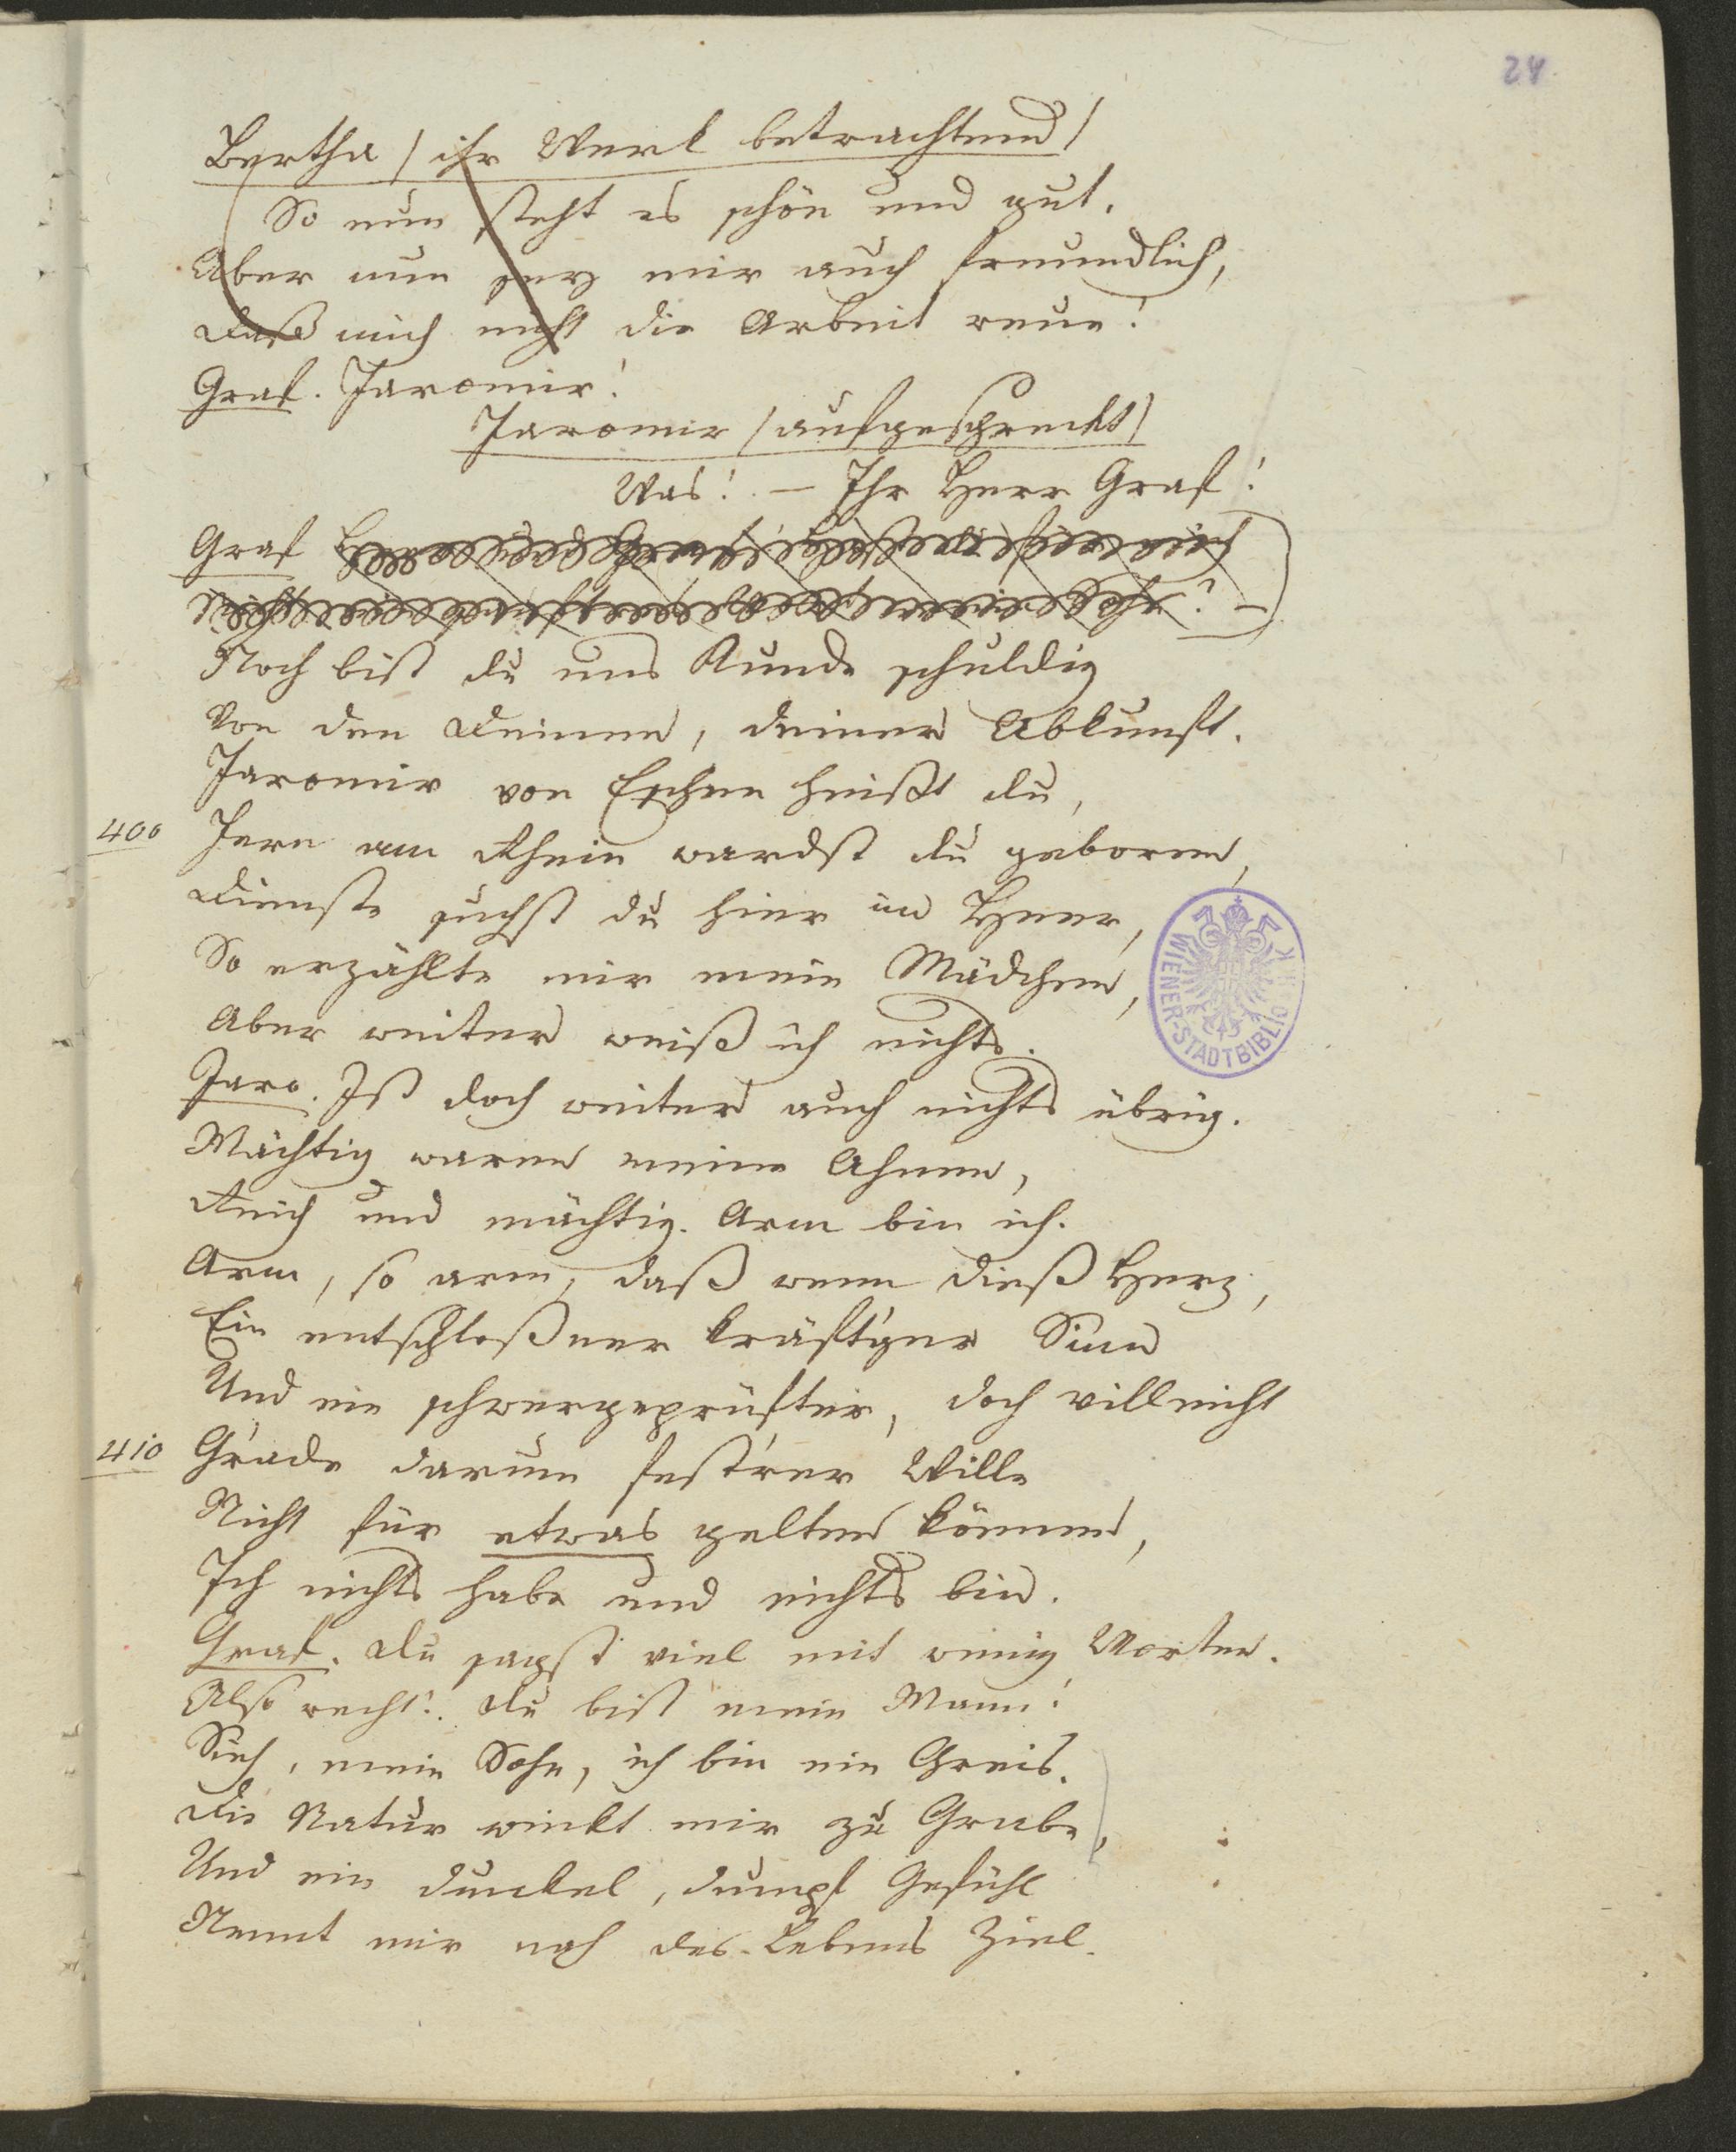 24.
Bertha / ihr Werk betrachtend /
So nun steht es schön und gut.
Aber nun sey mir auch freundlich,
Daß mich nicht die Arbeit reue!
Graf. Jaromir!
Jaromir / aufgeschreckt /
Was! – Ihr Herr Graf!
Graf
Noch bist du uns Kunde schuldig
Von den Deinen, deiner Abkunft.
Jaromir von Eschen heißt du,
400 Fern am Rhein wardst du geboren,
Dienste suchst du hier im Heer,
So erzählte mir mein Mädchen,
Aber weiter weiß ich nichts.
Jaro. Ist doch weiter auch nichts übrig.
Mächtig waren meine Ahnen,
Reich und mächtig. Arm bin ich.
Arm, so arm, daß wenn dieß Herz,
Ein entschloßner kräft'ger Sinn
Und ein schwergeprüfter, doch villeicht
410 G'rade darum fest'rer Wille
Nicht für etwas gelten können,
Ich nichts habe und nichts bin.
Graf. Du sagst viel mit wenig Worten.
Also recht! Du bist mein Mann!
Sieh, mein Sohn, ich bin ein Greis.
Die Natur winkt mir zu Grabe,
Und ein dunkel, dumpf Gefühl
Nennt mir nah des Lebens Ziel.
WIENER-STADTBIBLIO